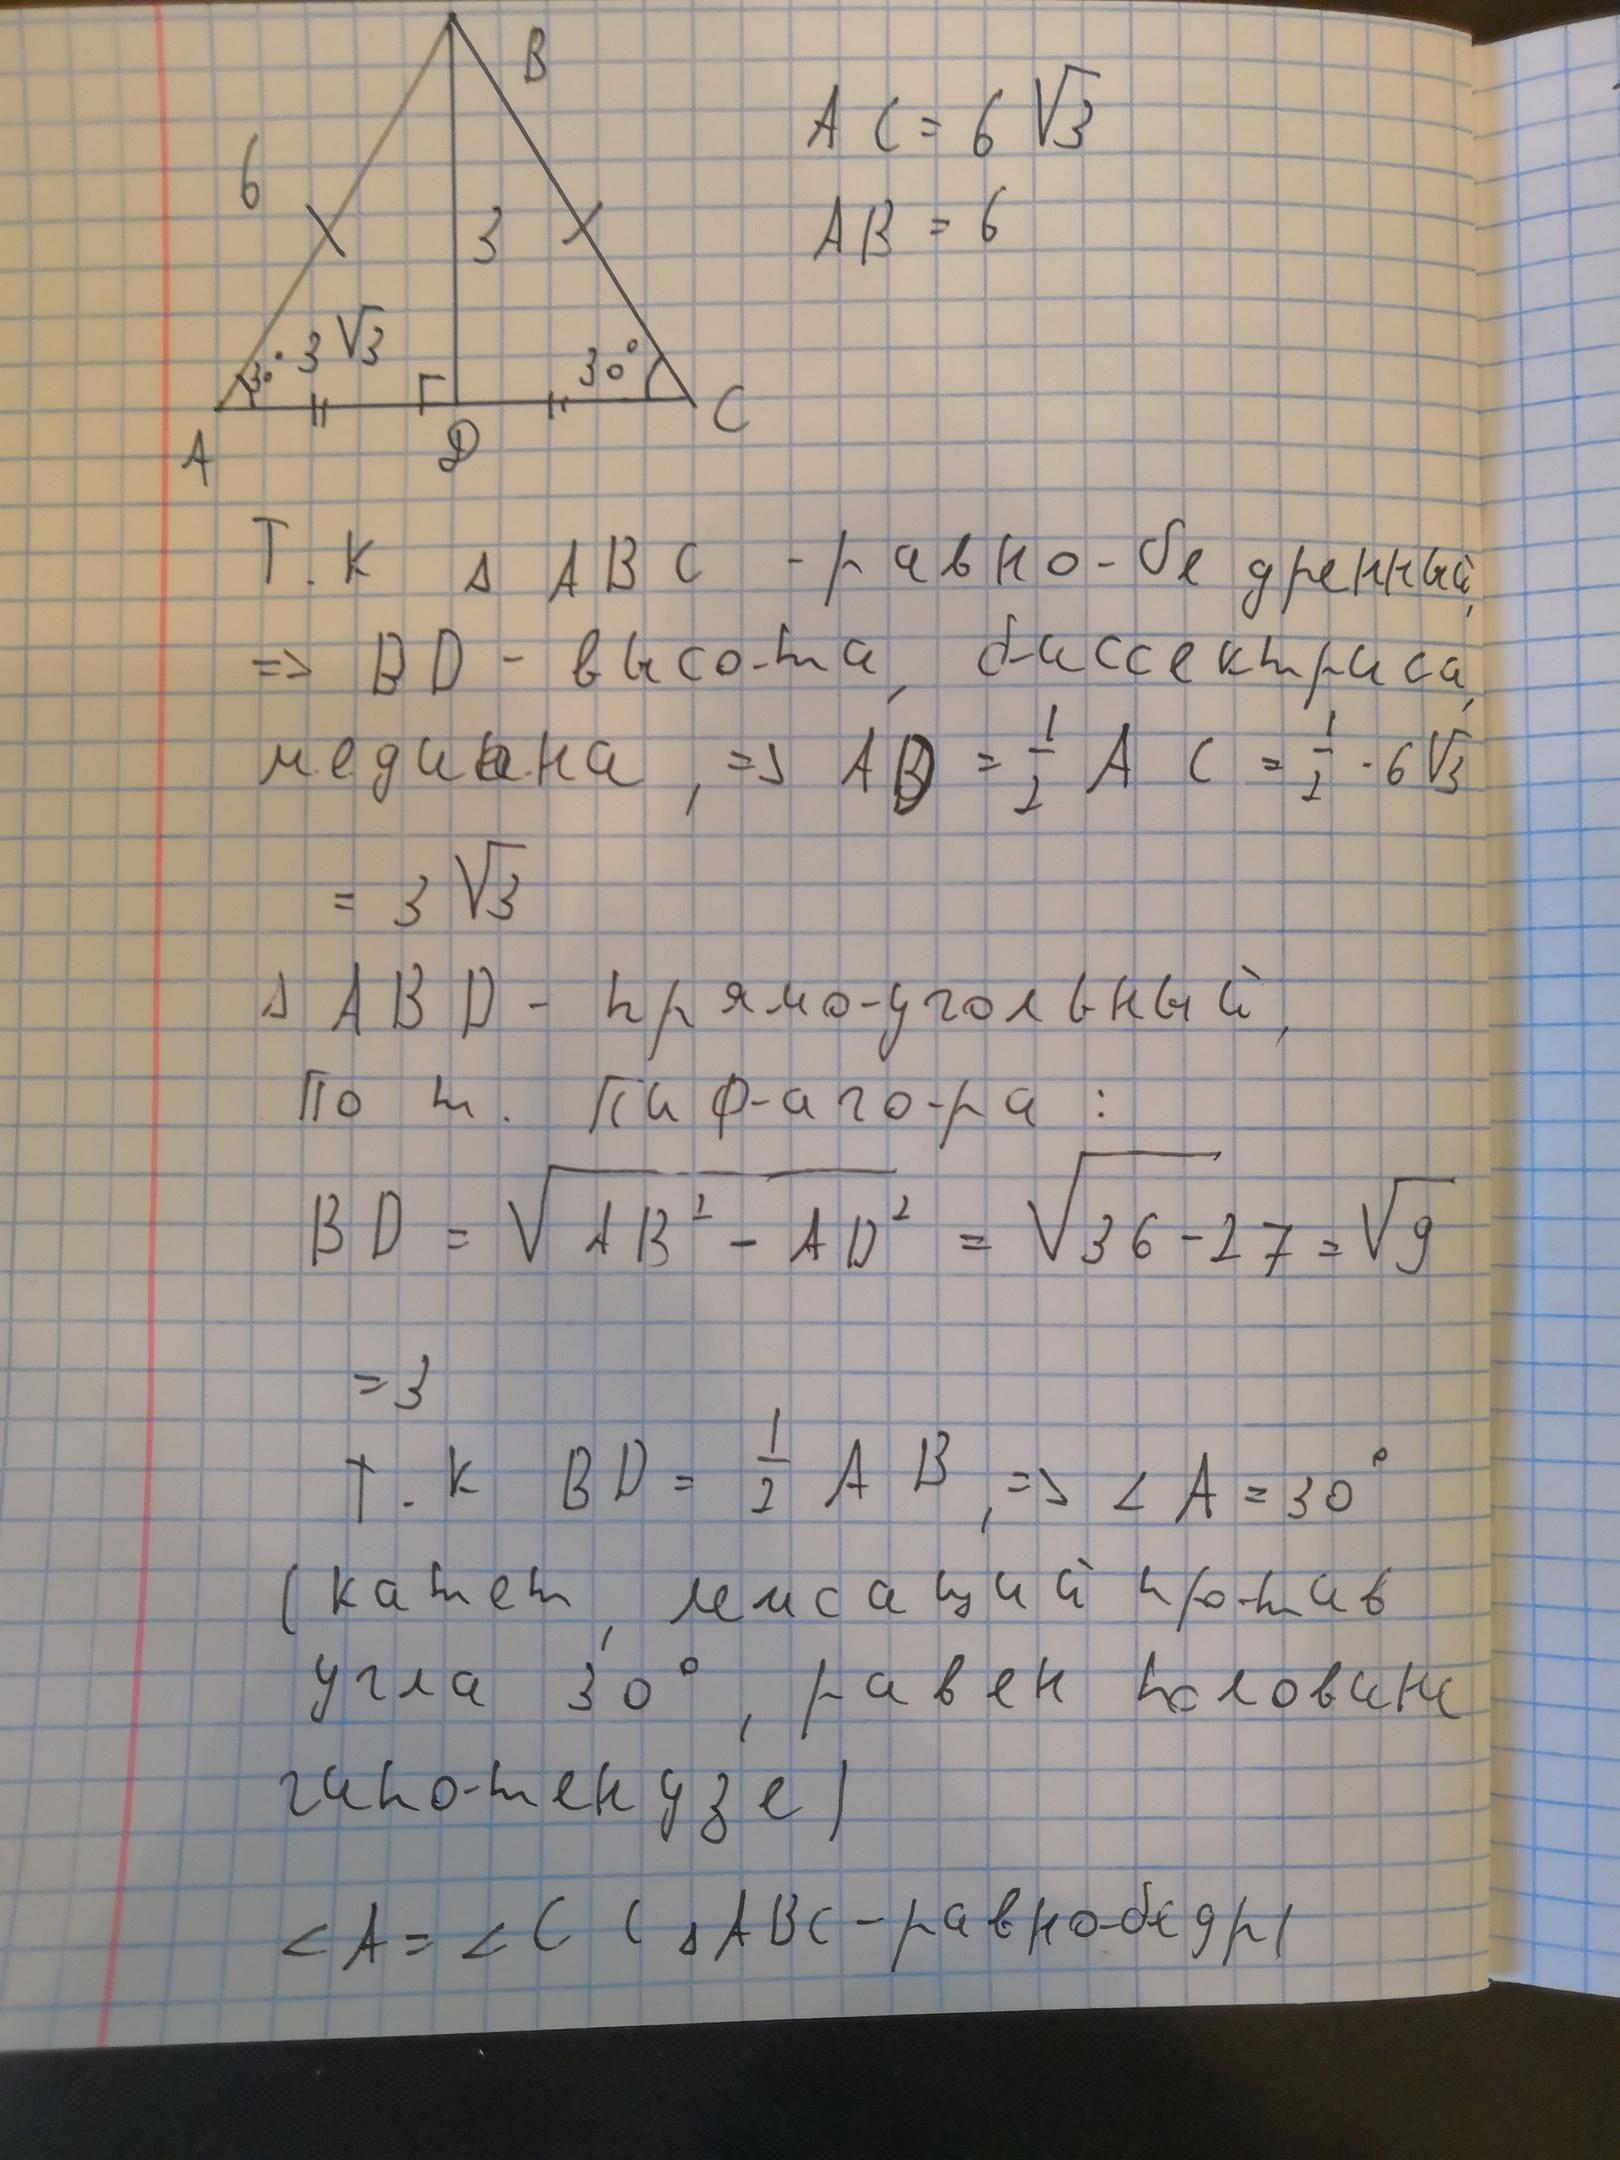 B
AC = 6√3
6
AB = 6
3
30° 3√3
30°
A
D
C
Т.к △ ABC - равнобедренный,
=> BD - высота, биссектриса,
медиана, => AD = 1/2 AC = 1/2 · 6√3
= 3√3
△ ABD - прямоугольный,
По т. Пифагора:
BD = √(AB² - AD²) = √(36-27) = √9
= 3
Т.к BD = 1/2 AB, => ∠A = 30°
(катет, лежащий против
угла 30°, равен половине
гипотенузе)
∠A = ∠C (△ABC - равнобедр)